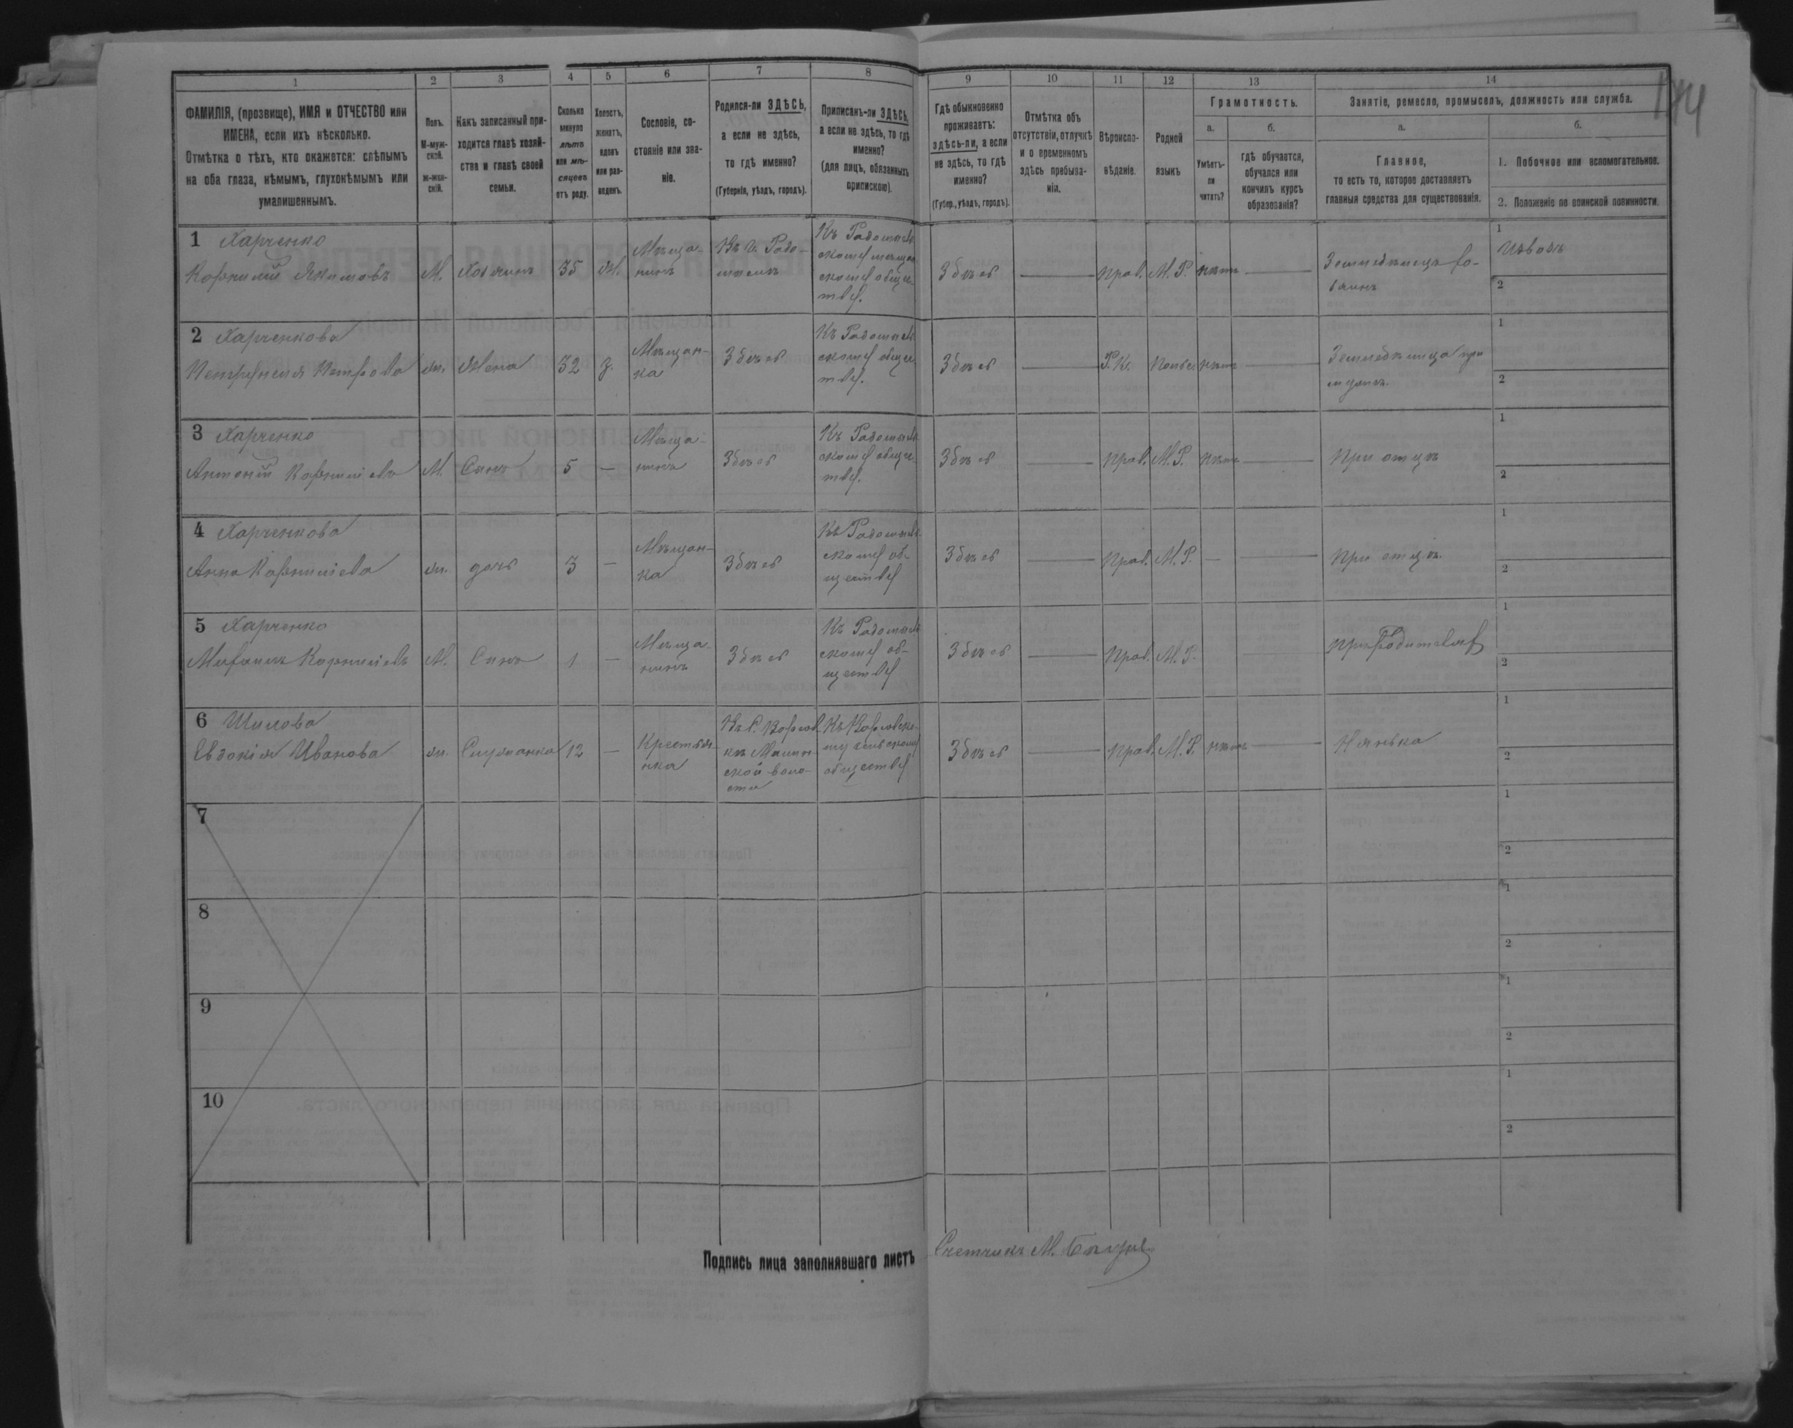 1 2 3 4 5 6 7 8 9 10 11 12 13 14
174
ФАМИЛІЯ, (прозвище), ИМЯ и ОТЧЕСТВО или
ИМЕНА, если ихъ нѣсколько.
Отмѣтка о тѣхъ, кто окажется: слѣпымъ
на оба глаза, нѣмымъ, глухонѣмымъ или
умалишеннымъ.
Полъ.
М-муж-
ской.
ж-жен-
скій.
Какъ записанный при-
ходится главѣ хозяй-
ства и главѣ своей
семьи.
Сколько
минуло
лѣтъ
или мѣ-
сяцевъ
отъ роду.
Холостъ,
женатъ,
вдовъ
или раз-
веденъ.
Сословіе, со-
стояніе или зва-
ніе.
Родился-ли ЗДѢСЬ,
а если не здѣсь,
то гдѣ именно?
(Губернія, уѣздъ, городъ).
Приписанъ-ли ЗДѢСЬ,
а если не здѣсь, то гдѣ
именно?
(для лицъ, обязанныхъ
припискою).
Гдѣ обыкновенно
проживаетъ:
здѣсь-ли, а если
не здѣсь, то гдѣ
именно?
(Губер., уѣздъ, городъ).
Отмѣтка объ
отсутствіи, отлучкѣ
и о временномъ
здѣсь пребыва-
ніи.
Вѣроиспо-
вѣданіе.
Родной
языкъ
Грамотность.
а.
Умѣетъ-
ли
читать?
б.
гдѣ обучается,
обучался или
кончилъ курсъ
образованія?
Занятіе, ремесло, промыселъ, должность или служба.
а.
Главное,
то есть то, которое доставляетъ
главныя средства для существованія.
б.
1. Побочное или вспомогательное.
2. Положеніе по воинской повинности.
1 Харченко
Корнилій Якимовъ
М.
Хозяинъ
35
Ж.
Мѣща-
нинъ
Въ г. Радо-
мыслѣ
Къ Радомысль
скому мѣщан
скому обще-
ству.
Здѣсь
Прав.
М. Р.
нѣтъ
Земледѣлецъ хо-
зяинъ
1 Извозъ
2
2 Харченкова
Петрунеля Петрова
ж.
Жена
32
з.
Мѣщан-
ка
Здѣсь
Къ Радомысль
скому обще-
ству.
Здѣсь
Р. К.
Польск
нѣтъ
Земледѣлица при
мужѣ
1
2
3 Харченко
Антоній Корниліевъ
М.
Сынъ
5
—
Мѣща-
нинъ
Здѣсь
Къ Радомысль
скому обще-
ству.
Здѣсь
Прав.
М. Р.
нѣтъ
При отцѣ
1
2
4 Харченкова
Анна Корниліева
ж.
дочь
3
—
Мѣщан-
ка
Здѣсь
Къ Радомысль
скому об-
ществу
Здѣсь
Прав.
М. Р.
—
При отцѣ.
1
2
5 Харченко
Корниліевъ
М.
Сынъ
1
—
Мѣща-
нинъ
Здѣсь
Къ Радомысль
скому об-
ществу
Здѣсь
Прав.
М. Р.
При родителяхъ
1
2
6 Шилова
Евдокія Иванова
ж.
Служанка
12
—
Крестьян
нка
Въ с. Ворсов
кѣ Малин
ской воло-
сти
Къ Ворсовско-
му сельскому
обществу
Здѣсь
Прав.
М. Р.
нѣтъ
Нянька
1
2
7
1
2
8
1
2
9
1
2
10
1
2
Подпись лица заполнявшаго листъ Счетчикъ М.